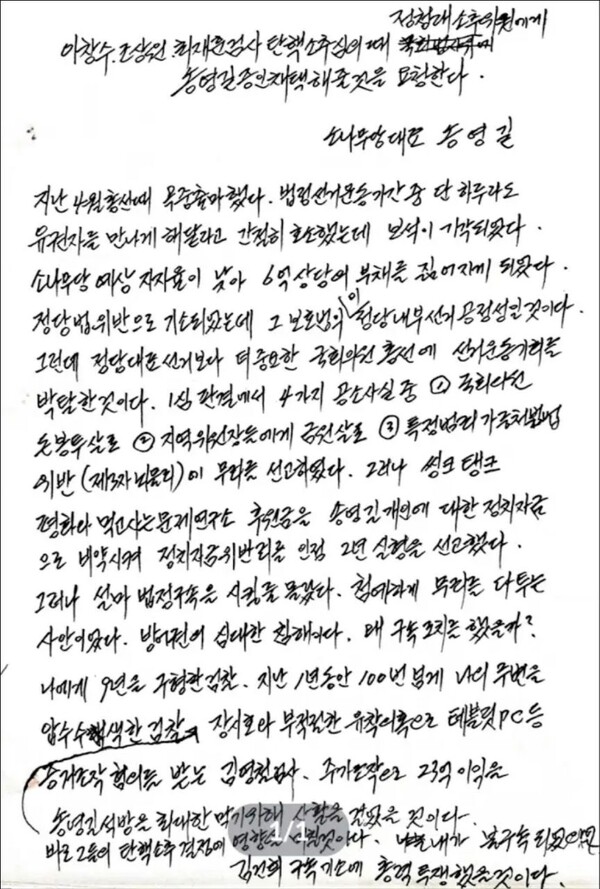 정청래 소추위원에게
이창수. 조상원. 최재훈검사 탄핵소추심의때
송영길 증인채택해줄것을 요청한다.
소나무당대표 송영길
지난 4월총선때 옥중출마했다. 법정선거운동기간중 단 하루라도
유권자를 만나게 해달라고 간절히 호소했는데 보석이 기각되었다.
소나무당 예상 지지율이 낮아 6억상당의 부채를 짊어지게 되었다.
정당법위반으로 기소되었는데 그 보호법익이 정당내부선거 공정성일것이다.
그런데 정당대표선거보다 더중요한 국회의원 총선에 선거운동기회를
박탈한것이다. 1심 판결에서 4가지 공소사실 중 ① 국회의원
돈봉투살포 ② 지역위원장등에게 금원살포 ③ 특정범죄가중처벌법
위반 (제3자뇌물죄)이 무죄를 선고하였다. 그러나 씽크탱크
평화와 먹고사는문제연구소 후원금을 송영길개인에 대한 정치자금
으로 비약시켜 정치자금위반죄를 인정 2년 실형을 선고했다.
그러나 설마 법정구속을 시킬줄 몰랐다. 첨예하게 무죄를 다투는
사안이었다. 방어권의 심대한 침해이다. 왜 구속조치를 했을까?
나에게 9년을 구형한검찰. 지난 1년동안 100번 넘게 나의 주변을
압수수색한 검찰. 장시호와 부적절한 유착의혹으로 테블릿PC등
증거조작 혐의를 받는 김영철검사. 주가조작으로 23억 이익을
송영길석방을 최대한 막기위해 사활을 걸었을 것이다.
바로 그들의 탄핵소추 결정에 영향을 것이다. 내가 불구속 되었다면
김건희 구속기소에 총력투쟁했을것이다.
1/1